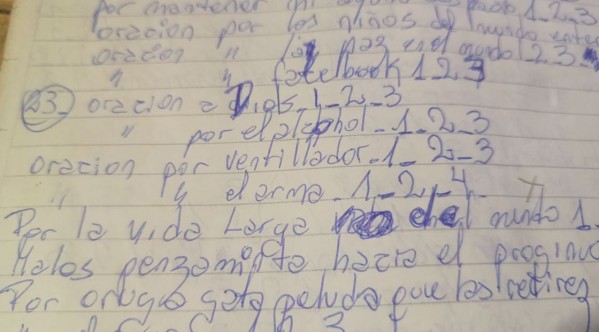 por mantener mi
oracion por los niños del mundo
oracion " la paz en el mundo 1 2 3
" " facebook 1 2 3
23 oracion a Dios - 1 - 2 - 3
" por el alcohol - 1 - 2 - 3
oracion por ventillador - 1 - 2 - 3
" " el arma - 1 - 2 - 4
Por la vida Larga del mundo 1
Malos penzamints hacia el
Por oruga gata peluda que las retires